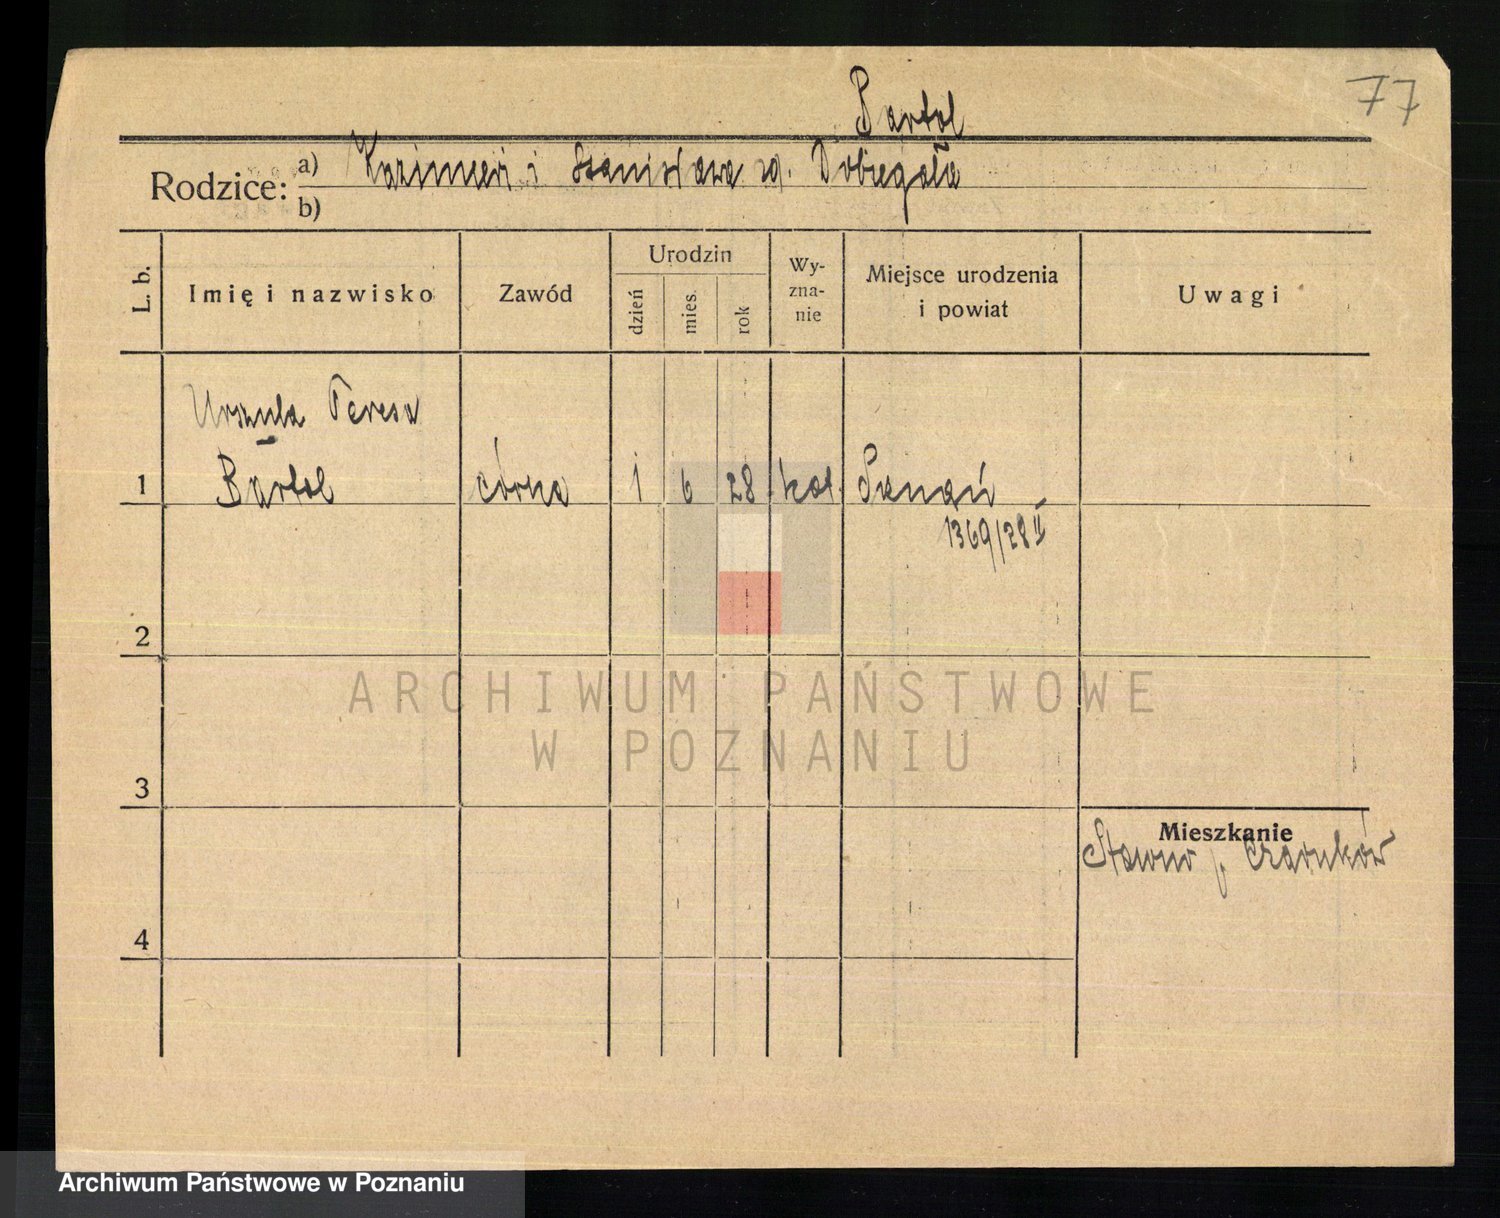 77
Bartol
Rodzice: a) Kazimierz i Stanisława zd. Dobiegała
b)
L. b. Imię i nazwisko Zawód Urodzin dzień mies. rok Wy-zna-nie Miejsce urodzenia i powiat Uwagi
Urszula Teresa
1 Bartol córka 1 6 28 kat. Poznań
1369/28 II
2
ARCHIWUM PAŃSTWOWE
W POZNANIU
3
Mieszkanie
Czarnków
4
Archiwum Państwowe w Poznaniu